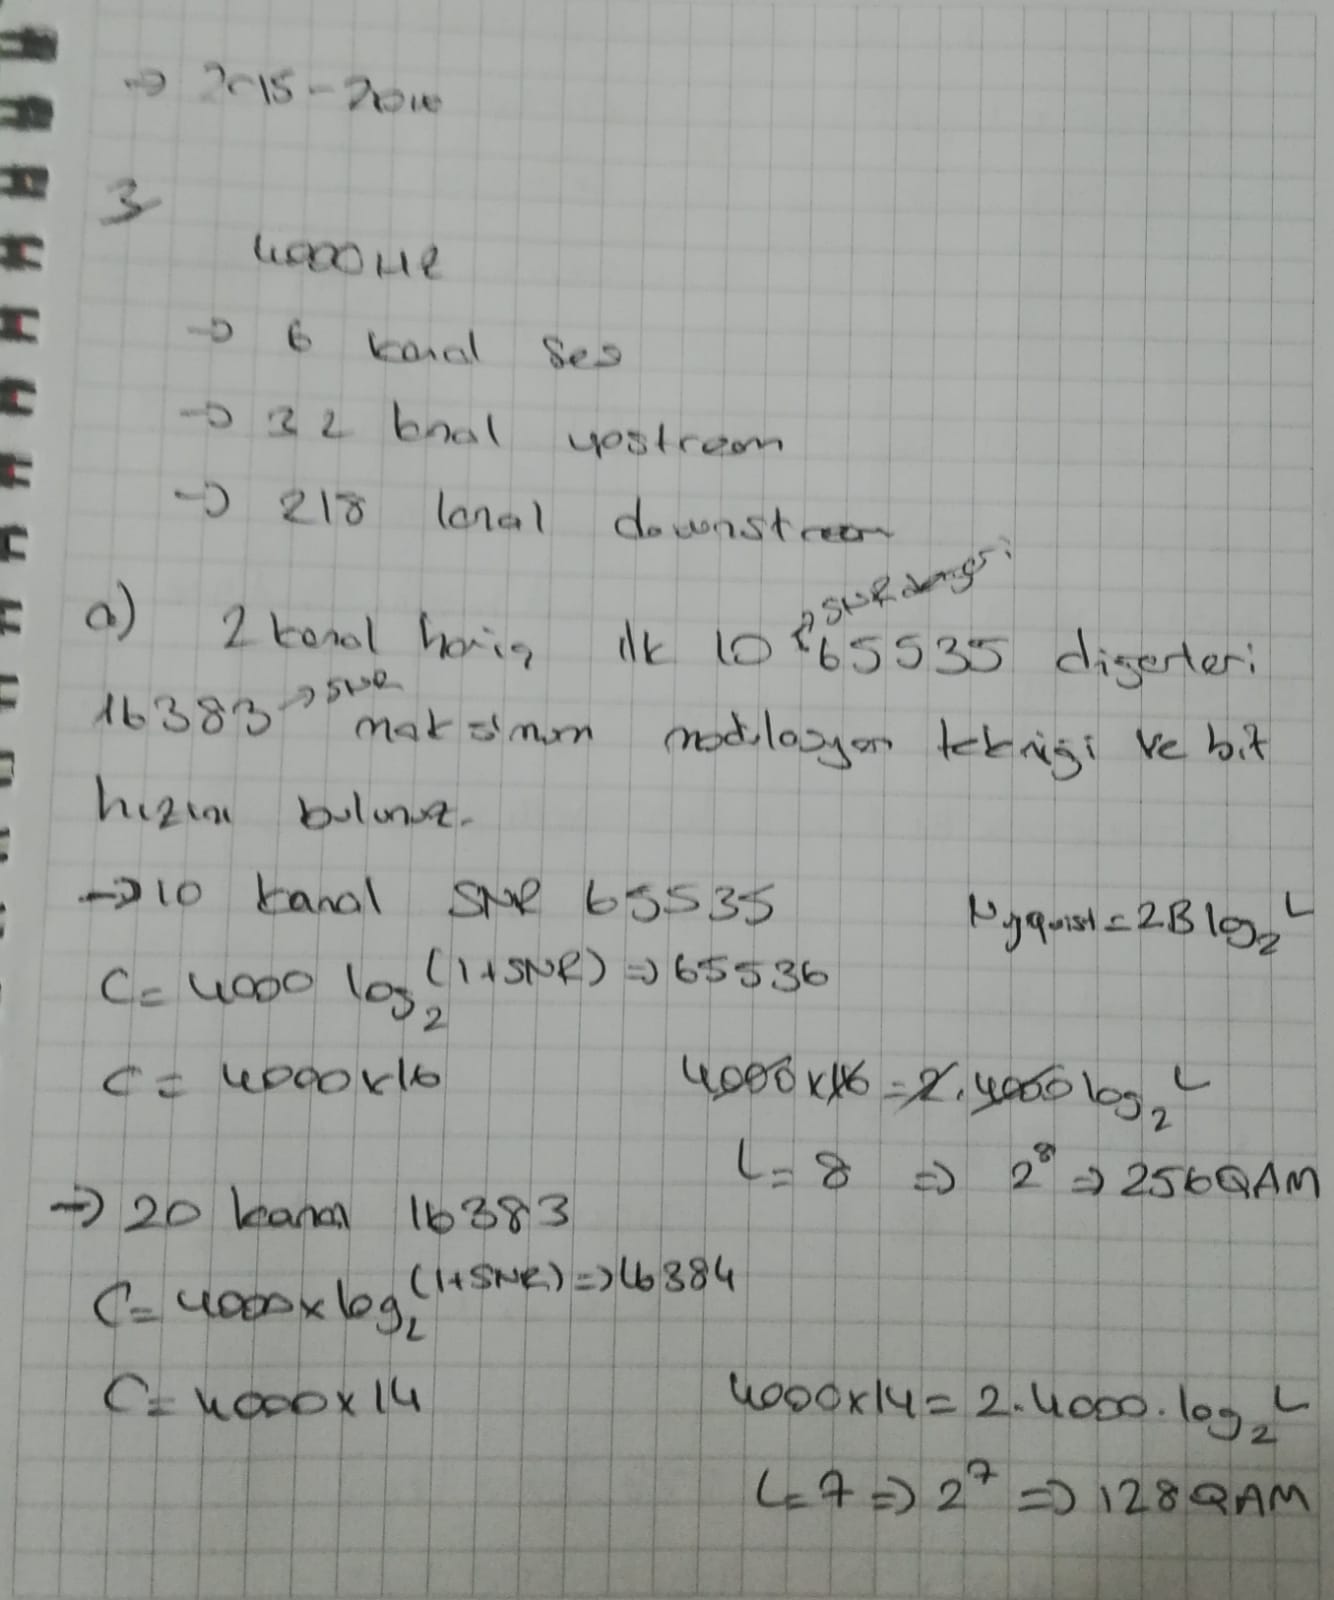 → 2015-2016
3
4000Hz
→ 6 kanal ses
→ 32 knal upstream
→ 218 kanal downstream
a) 2 kanal hariç ilk 10 65535 diğerleri
→ SNR değeri
16383 → SNR maksimum modülasyon tekniği ve bit
hızını bulunuz.
→ 10 kanal SNR 65535
Nyquist = 2B log₂ L
C = 4000 log₂ (1+SNR) ⇒ 65536
C = 4000x16
4000x16 = 2.4000 log₂ L
L = 8 ⇒ 2⁸ ⇒ 256QAM
→ 20 kanal 16383
C = 4000 x log₂ (1+SNR) ⇒ 16384
C = 4000 x 14
4000x14 = 2.4000.log₂ L
L = 7 ⇒ 2⁷ ⇒ 128QAM